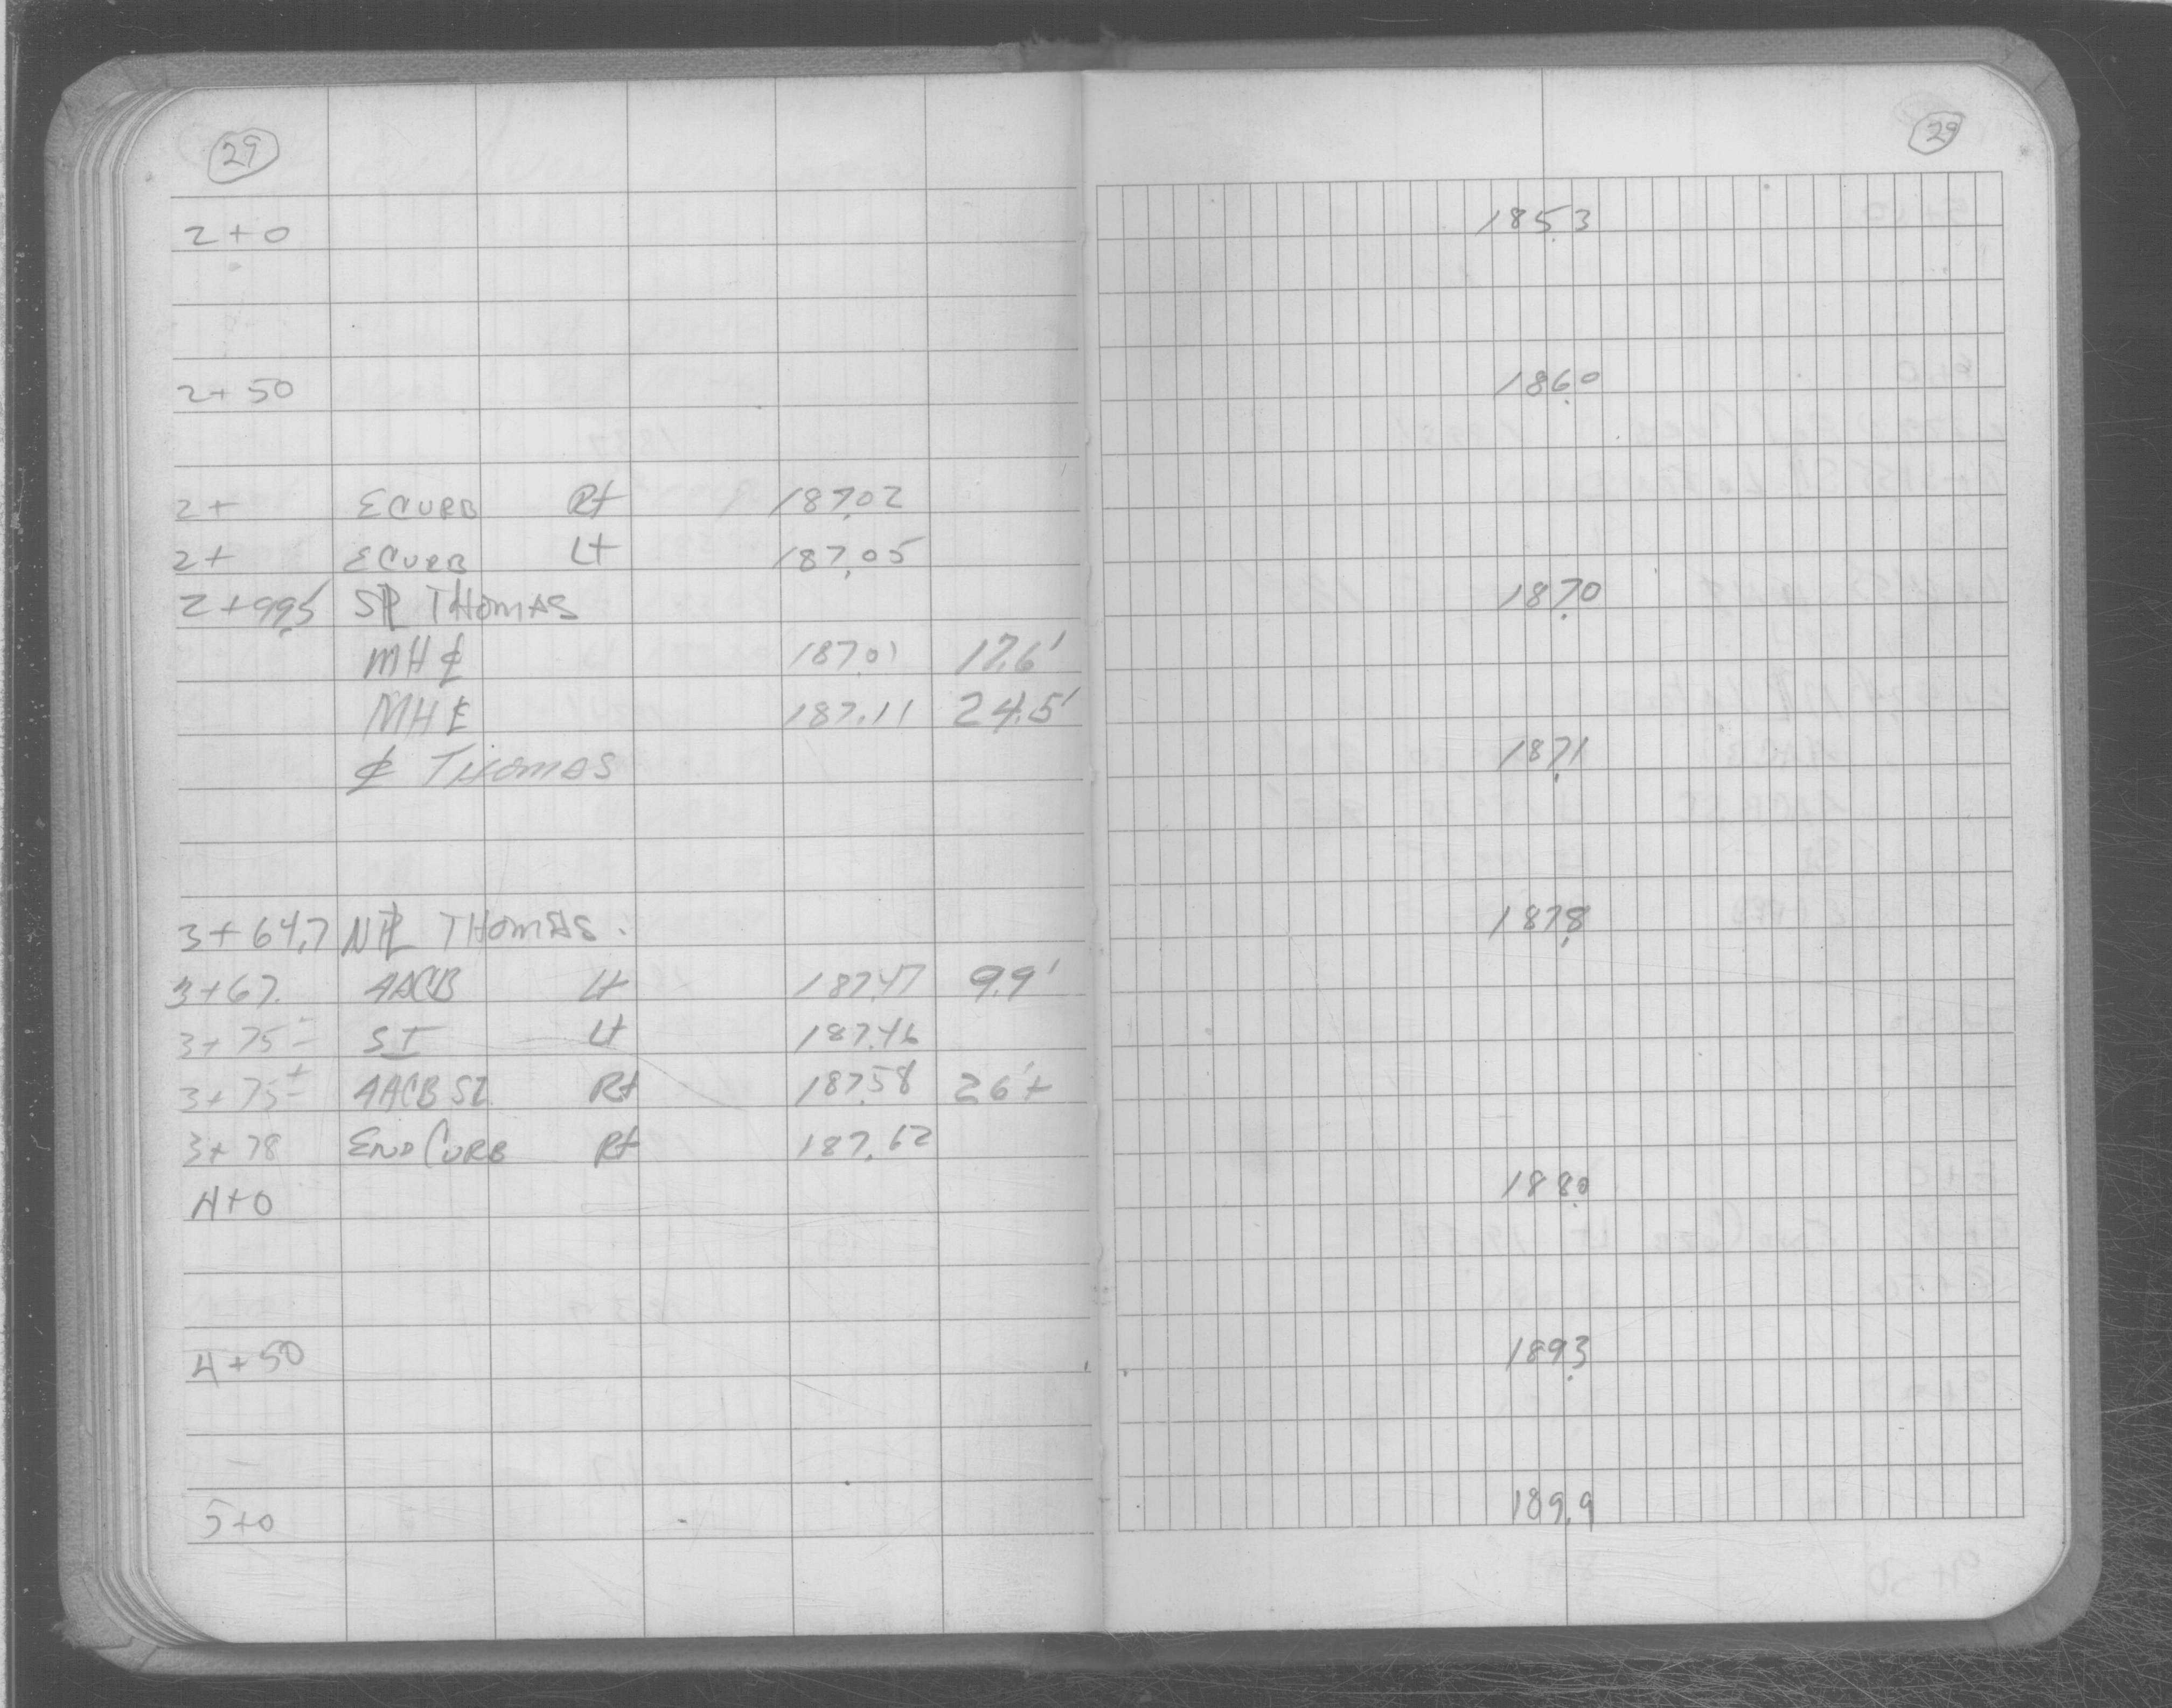 29 29
2+0 185.3
2+50 186.0
2+ E CURB Rt 187.02
2+ E CURB Lt 187.05
2+99.5 S℄ THOMAS 187.0
MH ℄ 187.01 17.6'
MH E 187.11 24.5'
℄ THOMAS 187.1
3+64.7 N℄ THOMAS. 187.8
3+67. AACB Lt 187.47 9.9'
3+75± SI Lt 187.46
3+75± AACB SI Rt 187.58 26'±
3+78 END CURB Rt 187.62
4+0 188.0
4+50 189.3
5+0 189.9